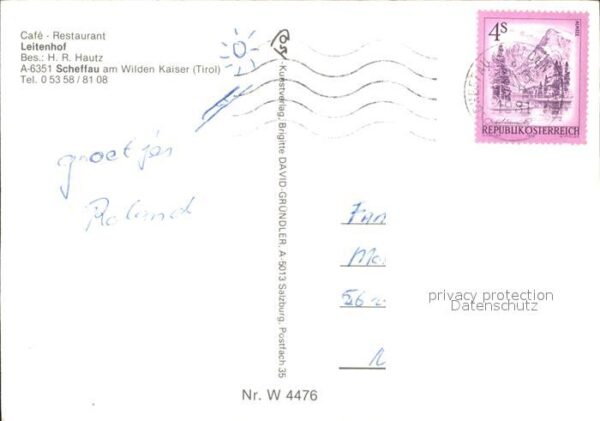 Café - Restaurant
Leitenhof
Bes.: H. R. Hautz
A-6351 Scheffau am Wilden Kaiser (Tirol)
Tel. 0 53 58 / 81 08
groetjes
Roland
Kunstverlag, Brigitte DAVID-GRÜNDLER, A-5013 Salzburg, Postfach 35
4S
ALMSEE
REPUBLIK ÖSTERREICH
Fam
56
privacy protection
Datenschutz
Nr. W 4476